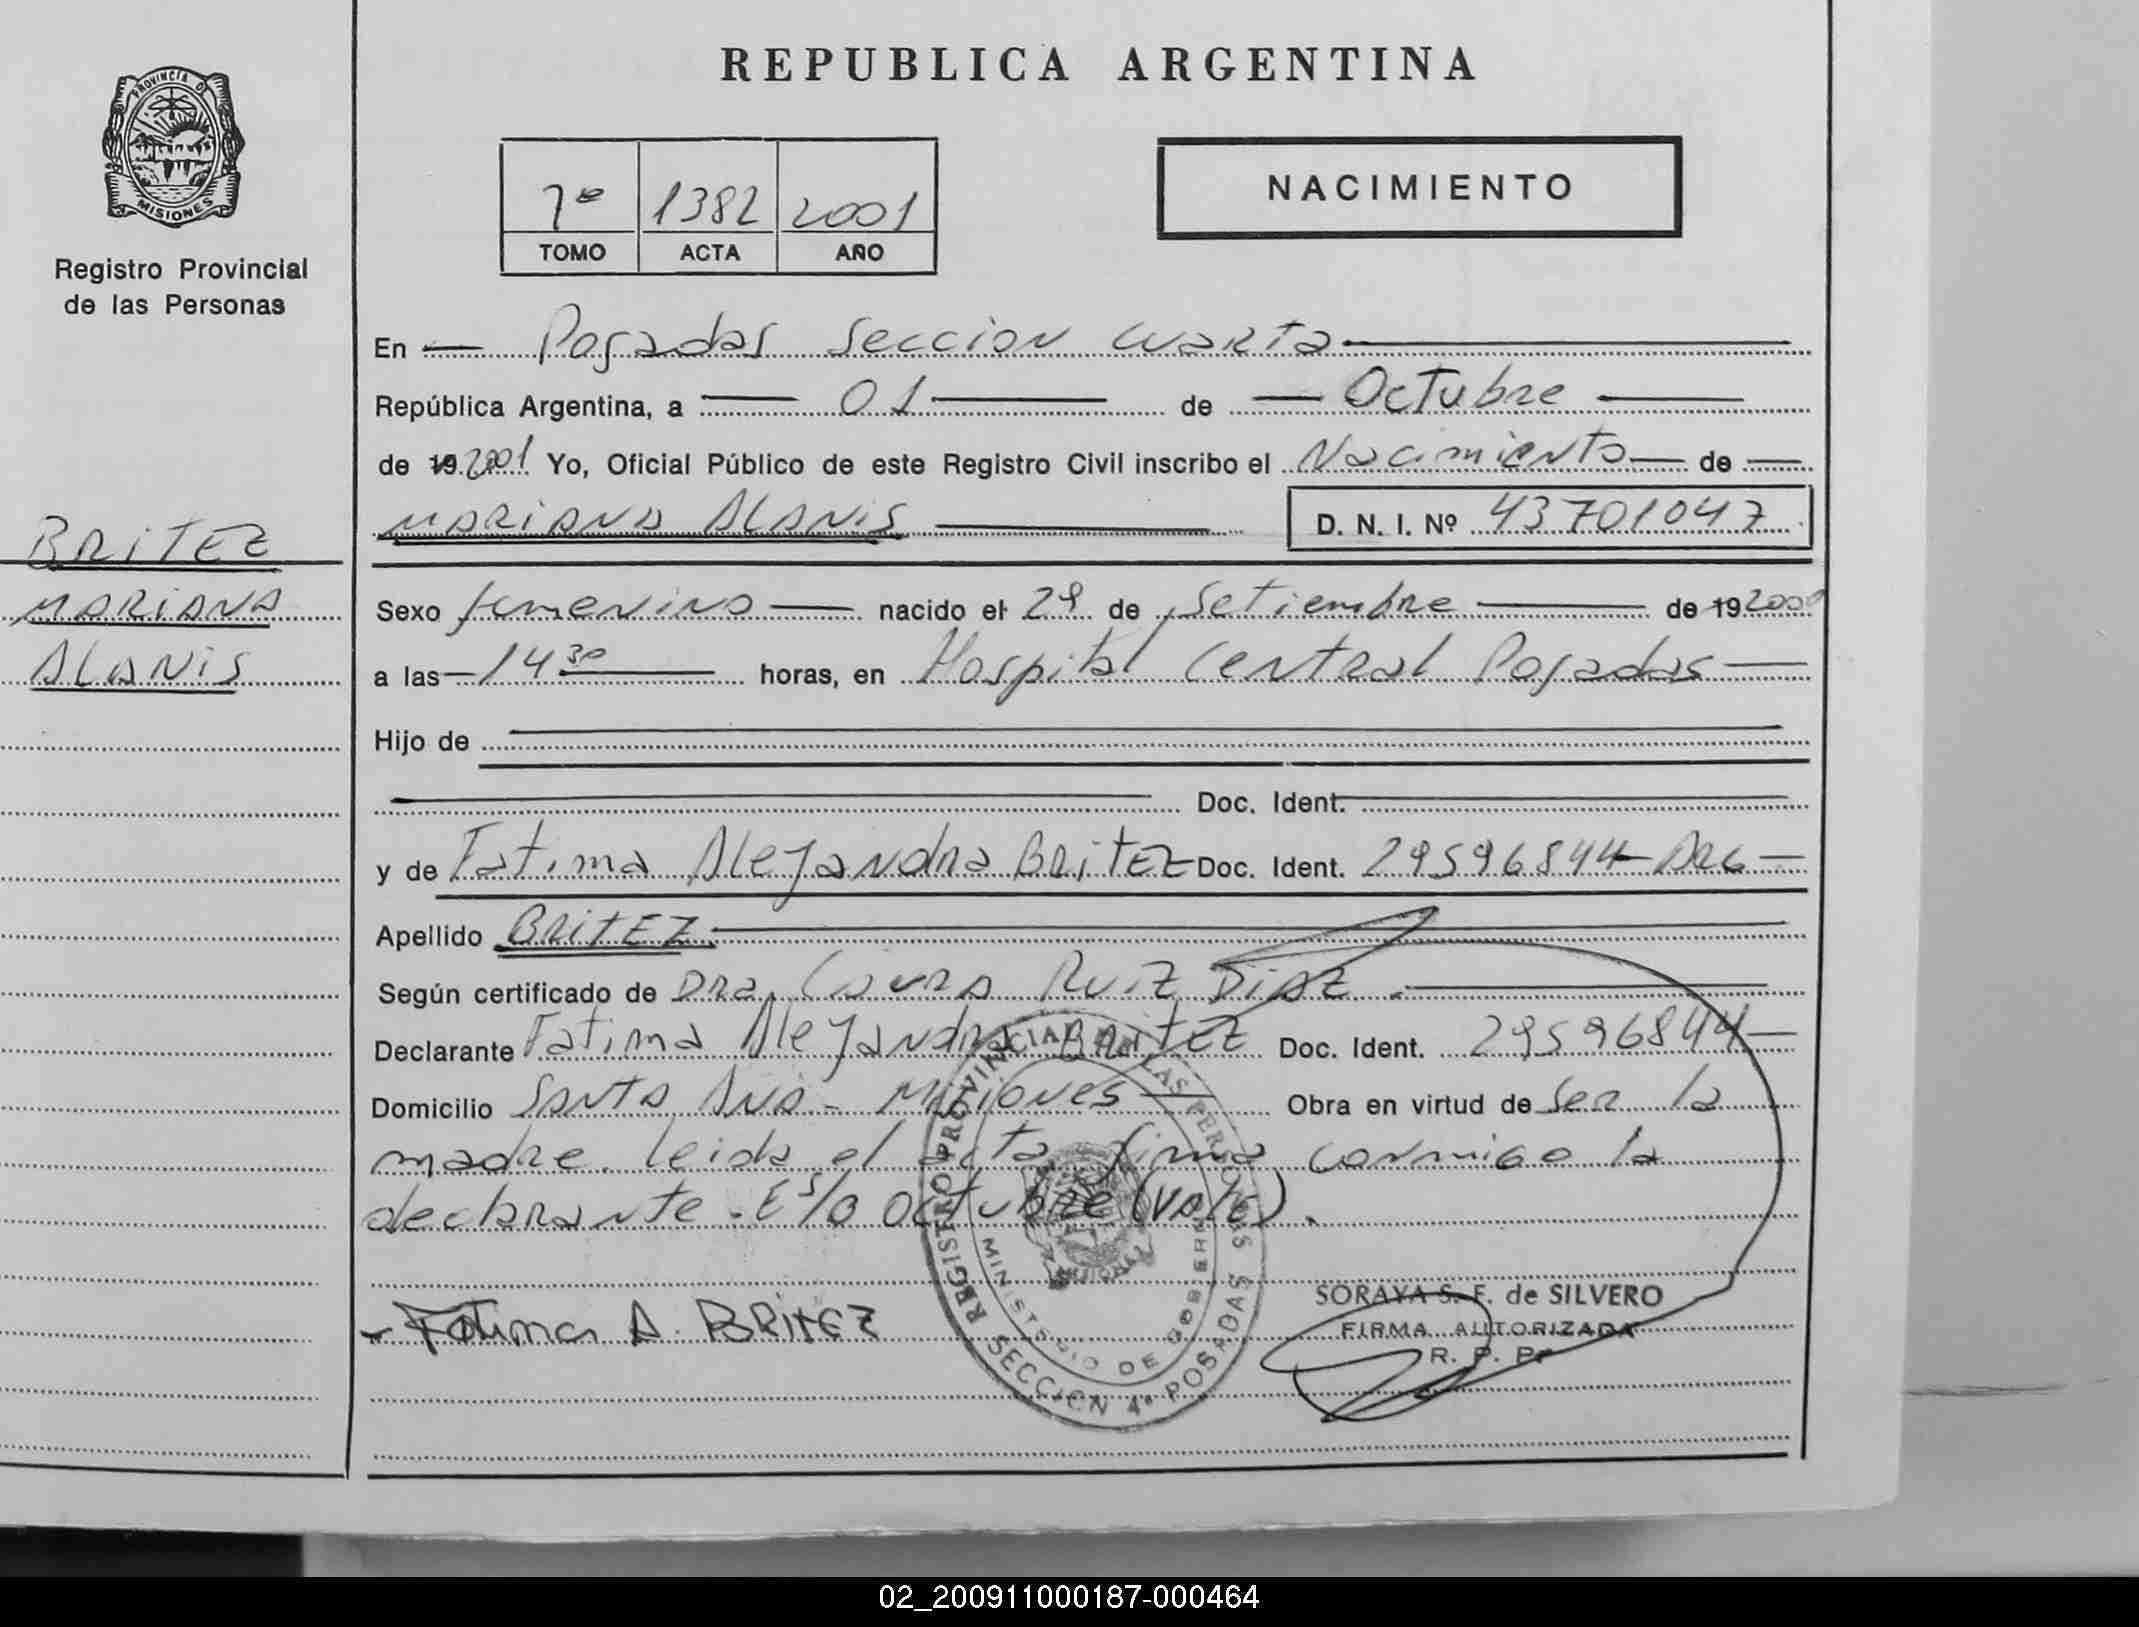 REPUBLICA ARGENTINA
PROVINCIA DE
MISIONES
Registro Provincial
de las Personas
7º 1382 2001
TOMO ACTA AÑO
NACIMIENTO
En Posadas Seccion cuarta
República Argentina, a 01 de Octubre
de 19 2001 Yo, Oficial Público de este Registro Civil inscribo el Nacimiento de
MARIANA ALANIS D. N. I. Nº 43701047
BRITEZ
MARIANA
ALANIS
Sexo femenino nacido el 29 de Setiembre de 19
a las 14 30 horas, en Hospital Central Posadas
Hijo de
Doc. Ident.
y de Fatima Alejandra BRITEZ Doc. Ident. 29596844 - ARG
Apellido BRITEZ
Según certificado de DRA. Laura RUIZ DIAZ.
Declarante Fatima Alejandra BRITEZ Doc. Ident. 29596844
Domicilio Santa Ana - Misiones Obra en virtud de ser la
madre. leida el acta firma conmigo la
declarante. E s/o Octubre (vale).
REGISTRO PROVINCIAL DE LAS PERSONAS
MINISTERIO DE GOBIERNO
SECCION 4ª POSADAS
Fatima A. BRITEZ
SORAYA S. F. de SILVERO
FIRMA AUTORIZADA
R. P. P.
02_200911000187-000464